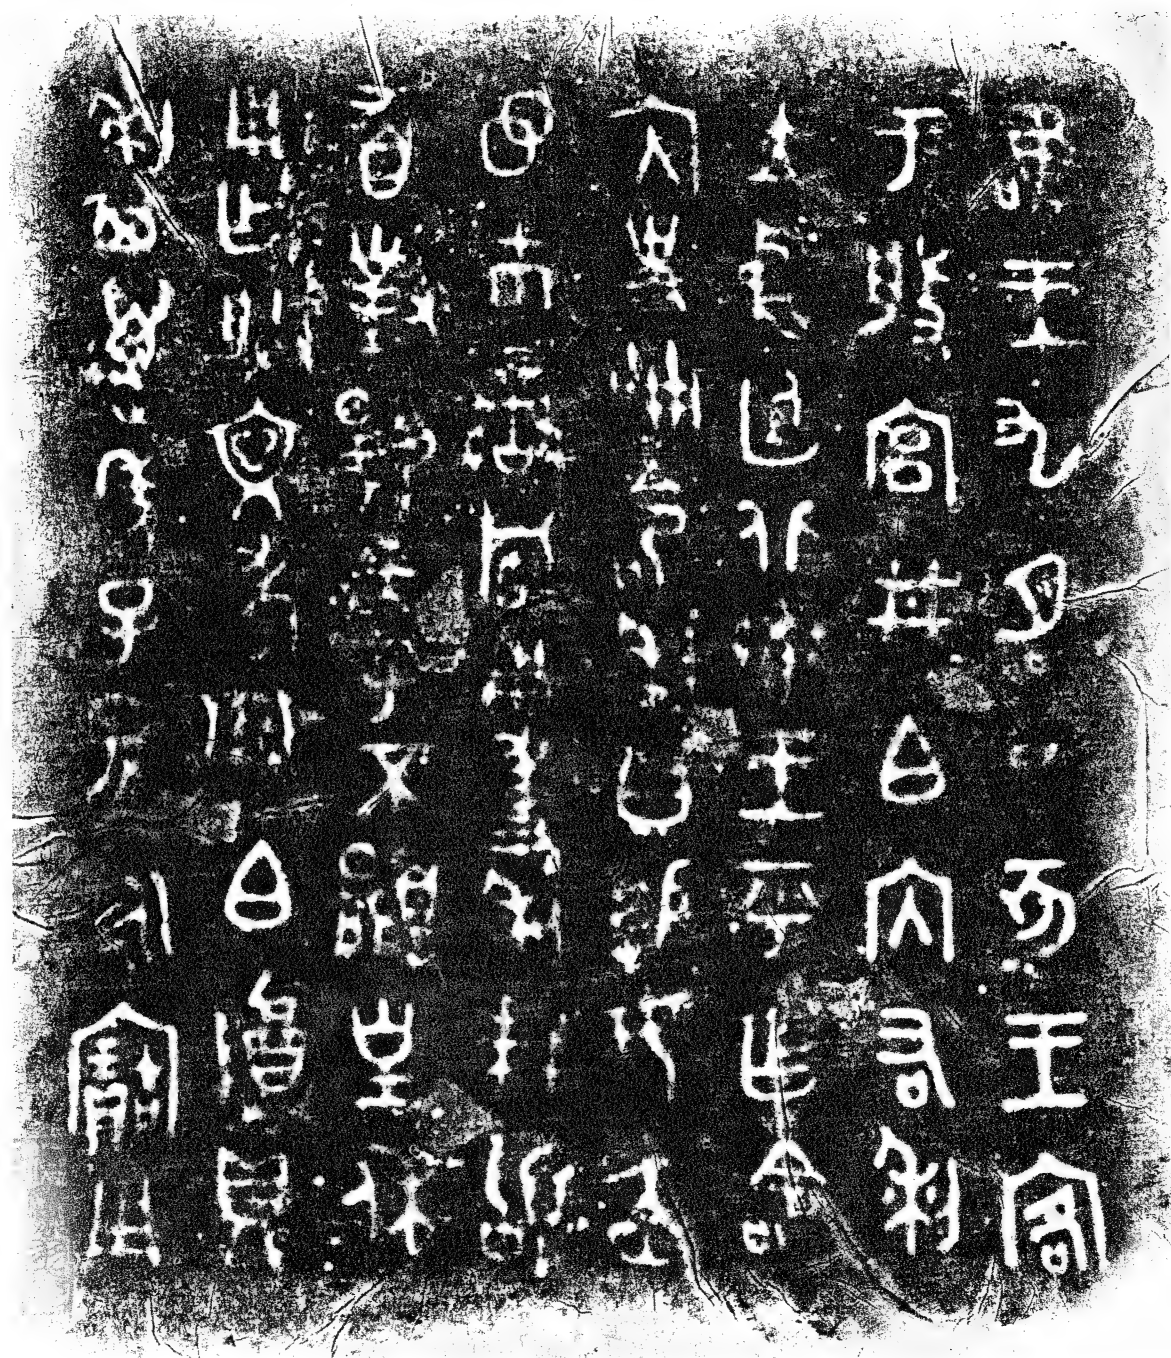 唯王九月丁亥王客
于般宮井白內右利
立中廷北鄉王乎乍命
內史冊命利曰易女赤
巿鑾旂用事利拜
䭫首對揚天子不顯皇休
用乍朕文考白尊鼎
利其萬年子孫永寶用